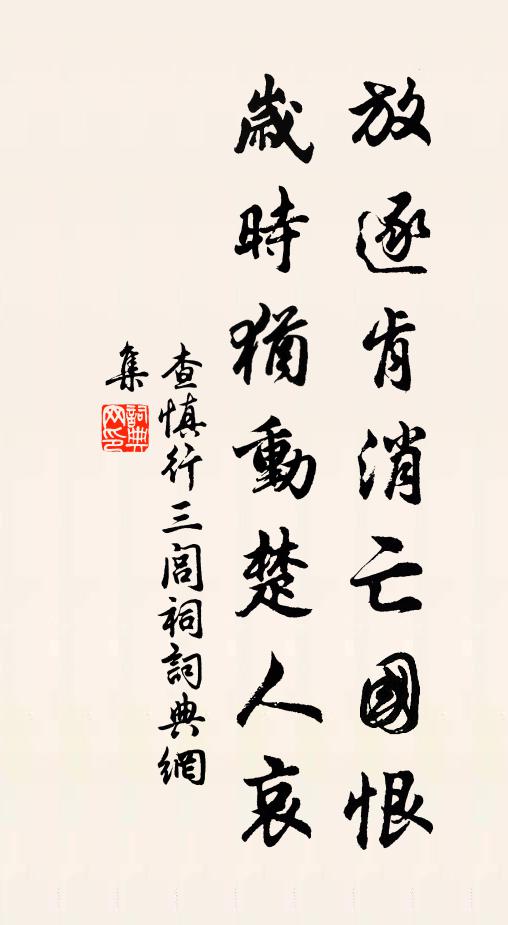 放逐肯消亡國恨
歲時猶動楚人哀
查慎行三閭祠詞典網
集
詞典网印